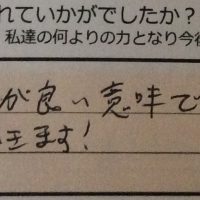 れていかがでしたか?
私達の何よりの力となり今後
が良い意味で
きます!